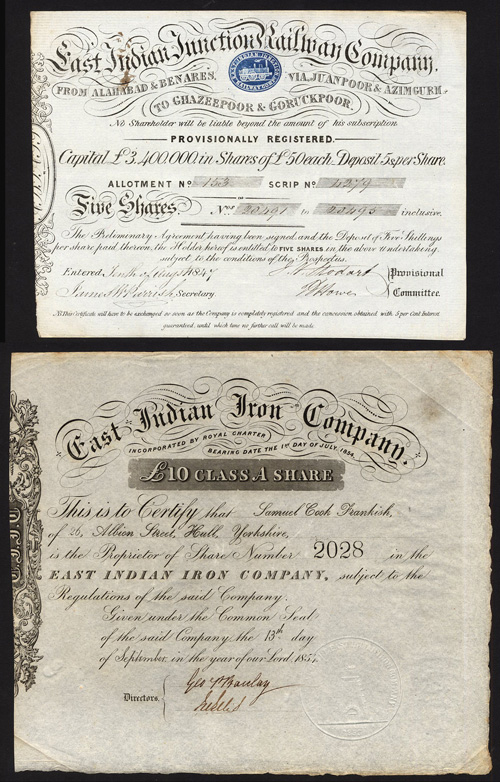 East Indian Junction Railway Company.
FROM ALAHABAD & BENARES, VIA JUANPOOR & AZIMGURH
TO GHAZEEPOOR & GORUCKPOOR.
No Shareholder will be liable beyond the amount of his subscription
PROVISIONALLY REGISTERED.
Capital £3,400,000 in Shares of £50 each. Deposit 5s per Share.
ALLOTMENT No 153 SCRIP No 4279
Five Shares. Nos 20491 to 20495 inclusive.
The Preliminary Agreement having been signed and the Deposit of Five Shillings
per share paid thereon, the Holder hereof is entitled to FIVE SHARES in the above undertaking
subject to the conditions of the Prospectus.
Entered, tenth of Aug 1847
Provisional
Secretary. Committee.
NB. This Certificate will have to be exchanged as soon as the Company is completely registered and the concession obtained with 5 per Cent Interest
guaranteed, until which time no further call will be made.
East Indian Iron Company.
INCORPORATED BY ROYAL CHARTER
BEARING DATE THE 1ST DAY OF JULY, 1854.
£10 CLASS A SHARE
This is to Certify that Samuel Cook Frankish,
of 26, Albion Street, Hull, Yorkshire,
is the Proprietor of Share Number 2028 in the
EAST INDIAN IRON COMPANY, subject to the
Regulations of the said Company.
Given under the Common Seal
of the said Company the 13th day
of September, in the year of our Lord, 1855.
Geo P Barclay
Directors,